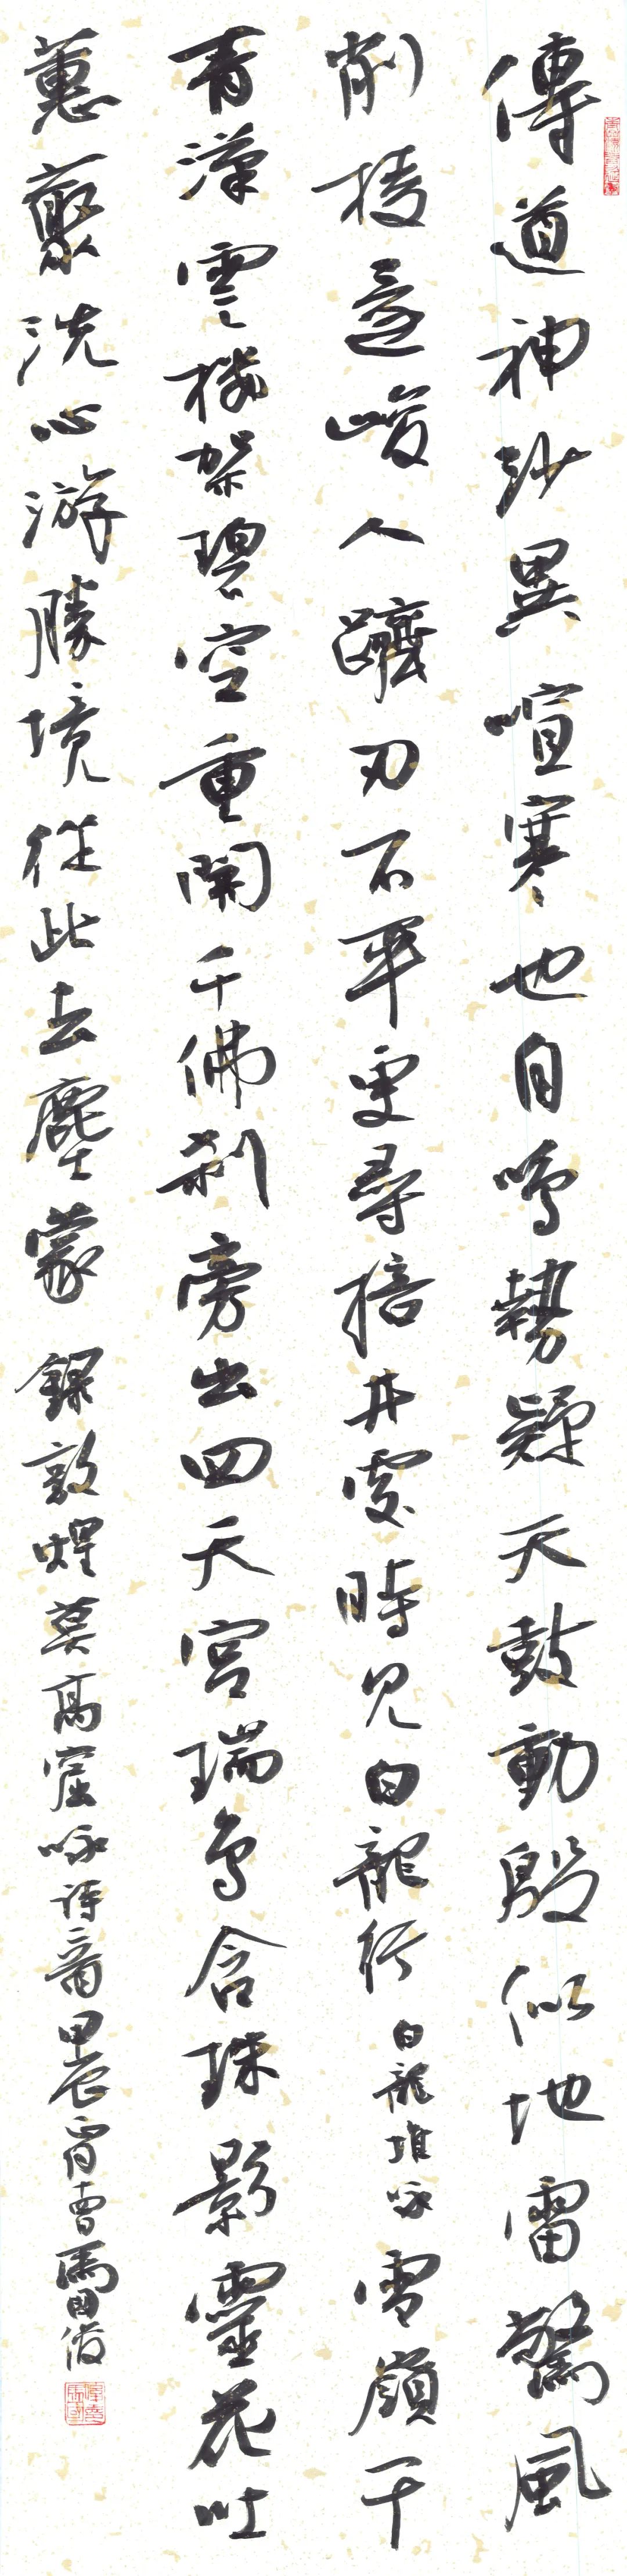 傳道神沙異喧寒也自鳴勢疑天鼓動殷似地雷驚風
削棱還峻人躋刃不平更尋掊井處時見白龍行白龍堆咏雪嶺干
青漢雲樓架碧空重開千佛刹旁出四天宮瑞鳥含珠影靈花吐
蕙叢洗心游勝境從此去塵蒙錄敦煌莫高窟咏詩二首甲辰